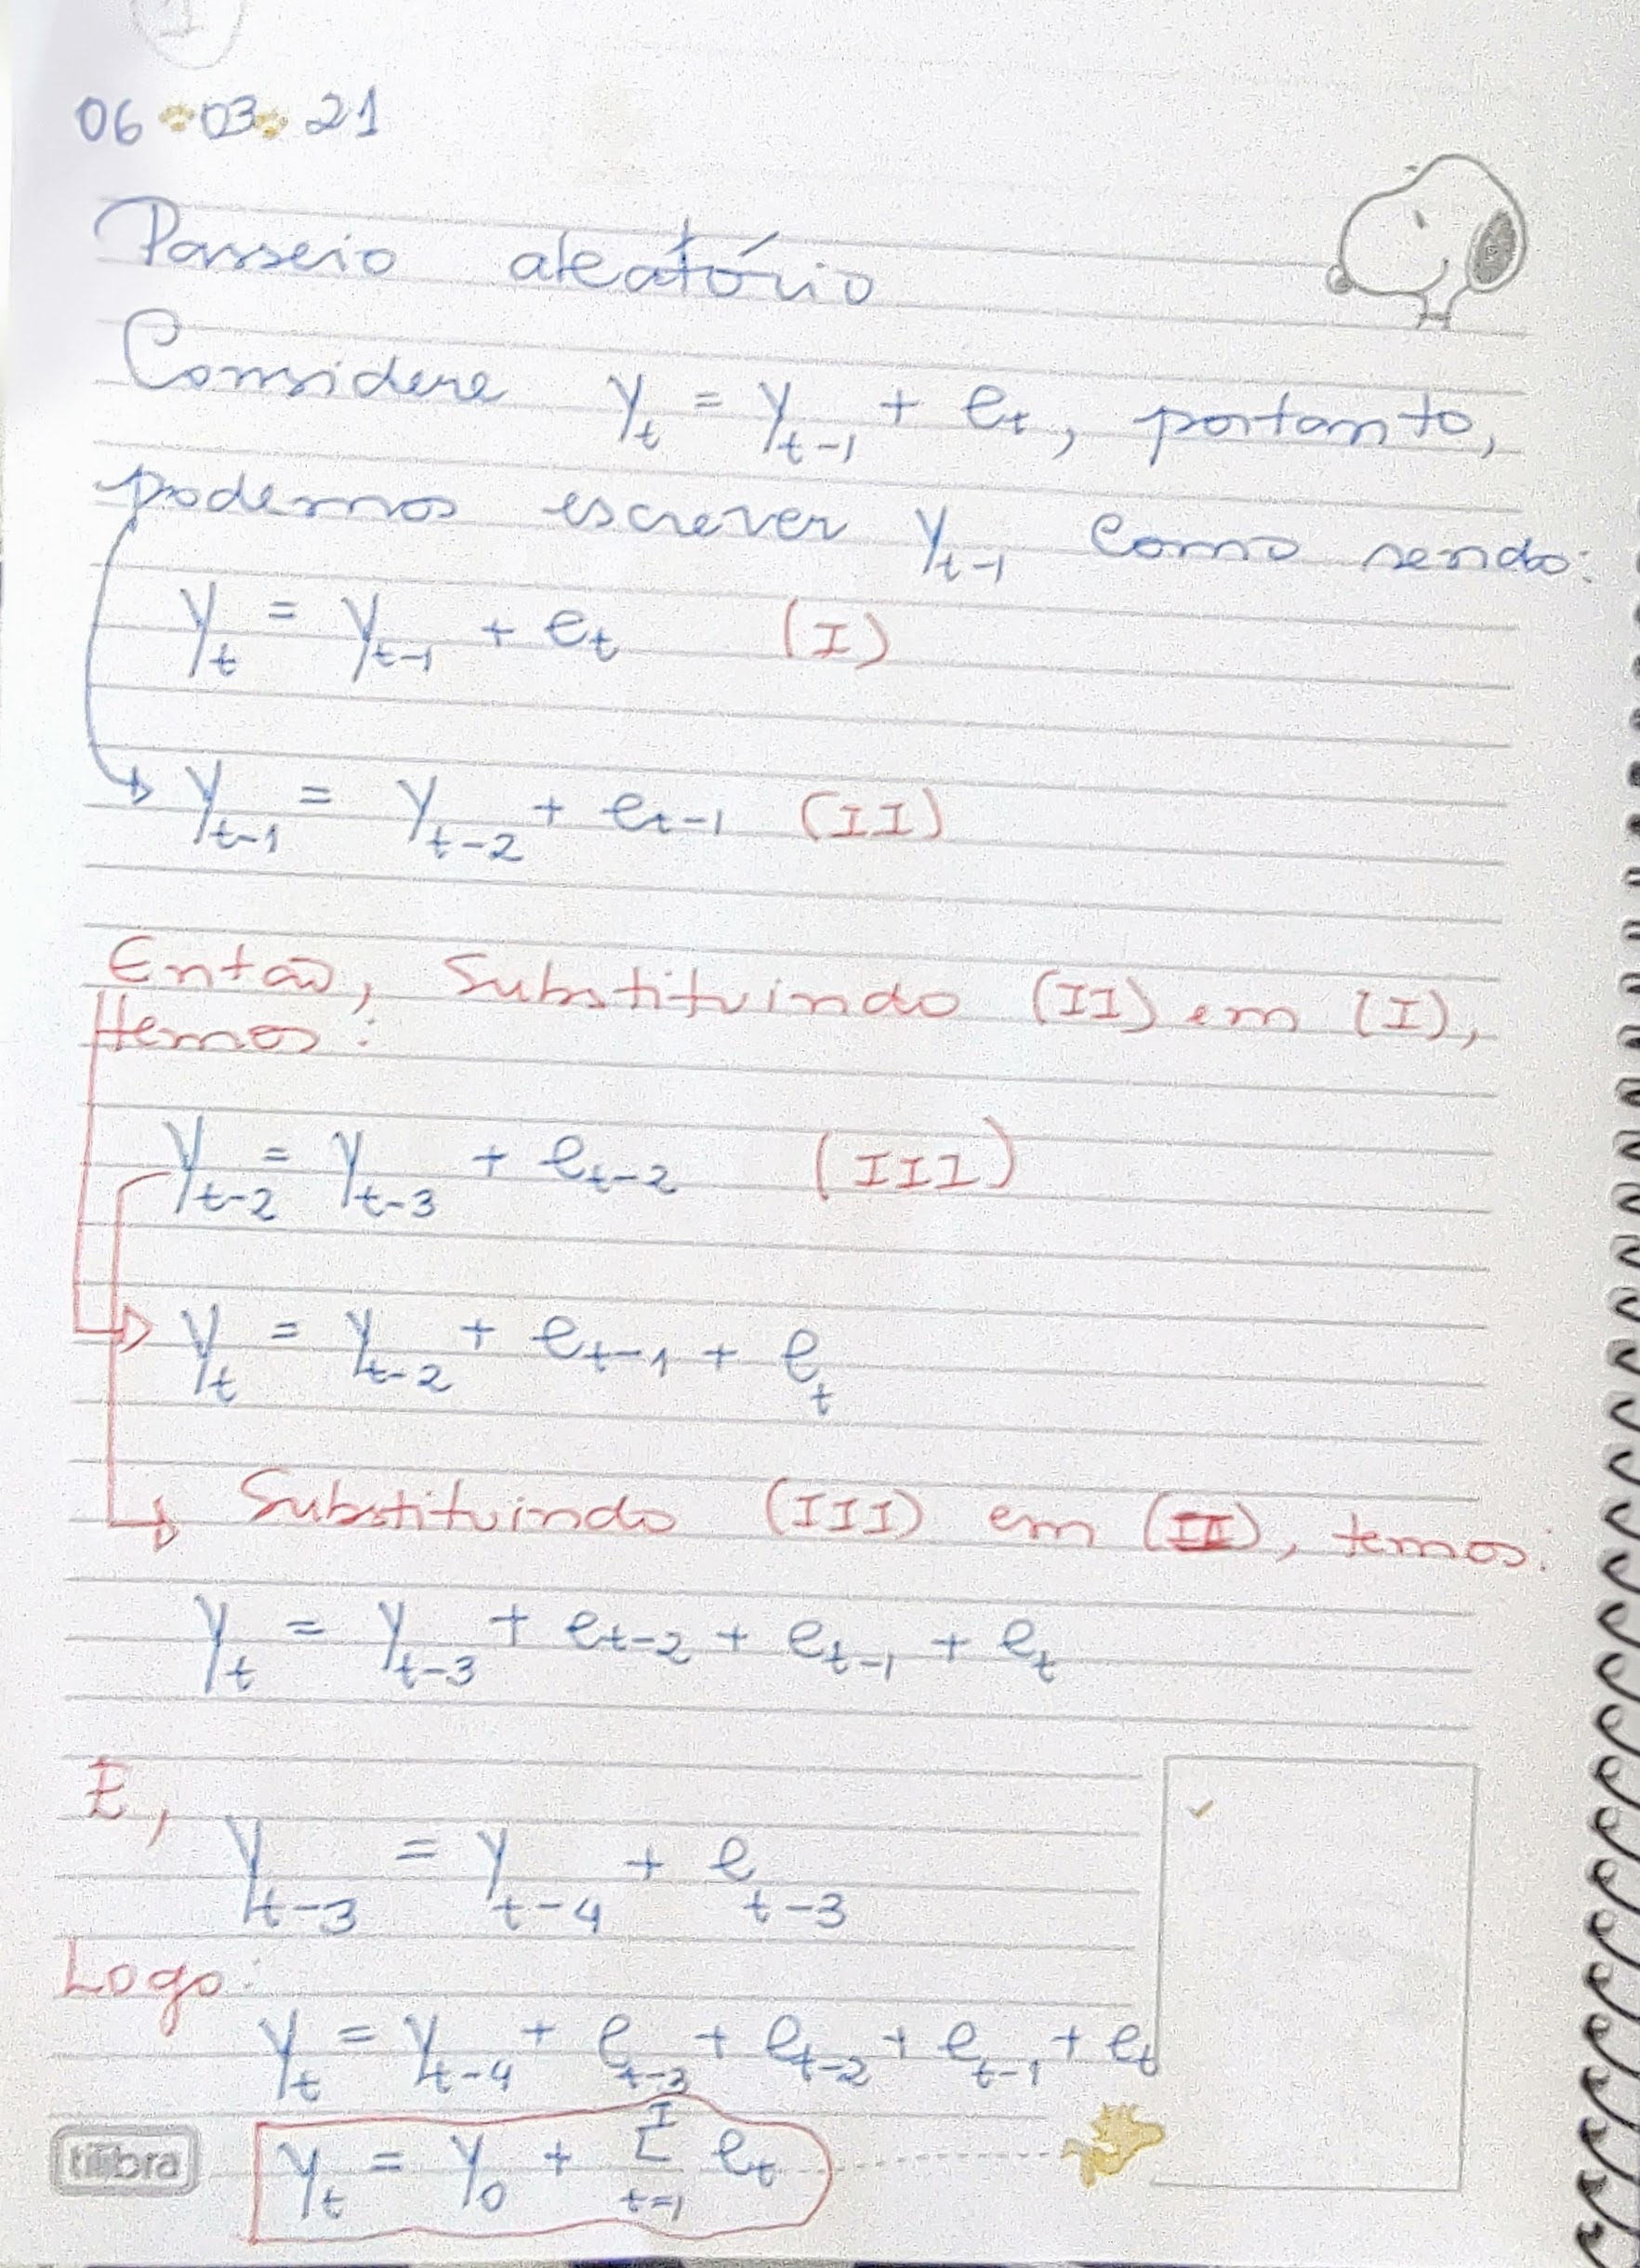 1
06 03 21
Passeio aleatório
Considere y_t = y_{t-1} + e_t, portanto,
podemos escrever y_{t-1} como sendo:
y_t = y_{t-1} + e_t (I)
y_{t-1} = y_{t-2} + e_{t-1} (II)
Então, Substituindo (II) em (I),
temos:
y_{t-2} = y_{t-3} + e_{t-2} (III)
y_t = y_{t-2} + e_{t-1} + e_t
Substituindo (III) em (II), temos:
y_t = y_{t-3} + e_{t-2} + e_{t-1} + e_t
E,
y_{t-3} = y_{t-4} + e_{t-3}
Logo:
y_t = y_{t-4} + e_{t-3} + e_{t-2} + e_{t-1} + e_t
y_t = y_0 + Σ_{t=1}^{I} e_t
tilibra